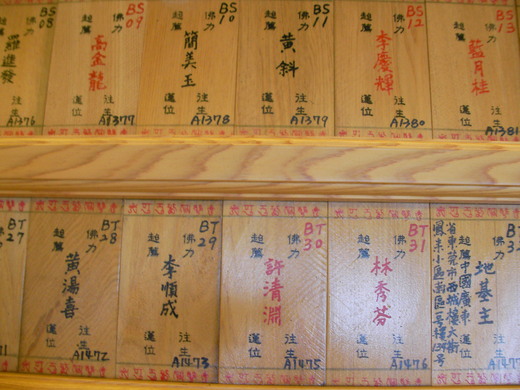 BS
08
佛力
超薦
羅進發
往生
蓮位
A1376
BS
09
佛力
超薦
高金龍
往生
蓮位
A1377
BS
10
佛力
超薦
簡美玉
往生
蓮位
A1378
BS
11
佛力
超薦
黃斜
往生
蓮位
A1379
BS
12
佛力
超薦
李慶輝
往生
蓮位
A1380
BS
13
佛力
超薦
藍月桂
往生
蓮位
A1381
BT
27
佛力
BT
28
佛力
超薦
黃湯喜
往生
蓮位
A1472
BT
29
佛力
超薦
李順成
往生
蓮位
A1473
BT
30
佛力
超薦
許清淵
往生
蓮位
A1475
BT
31
佛力
超薦
林秀芬
往生
蓮位
A1476
BT
佛力
超薦
中國廣東
省東莞市西城樓大街
地基主
往生
蓮位